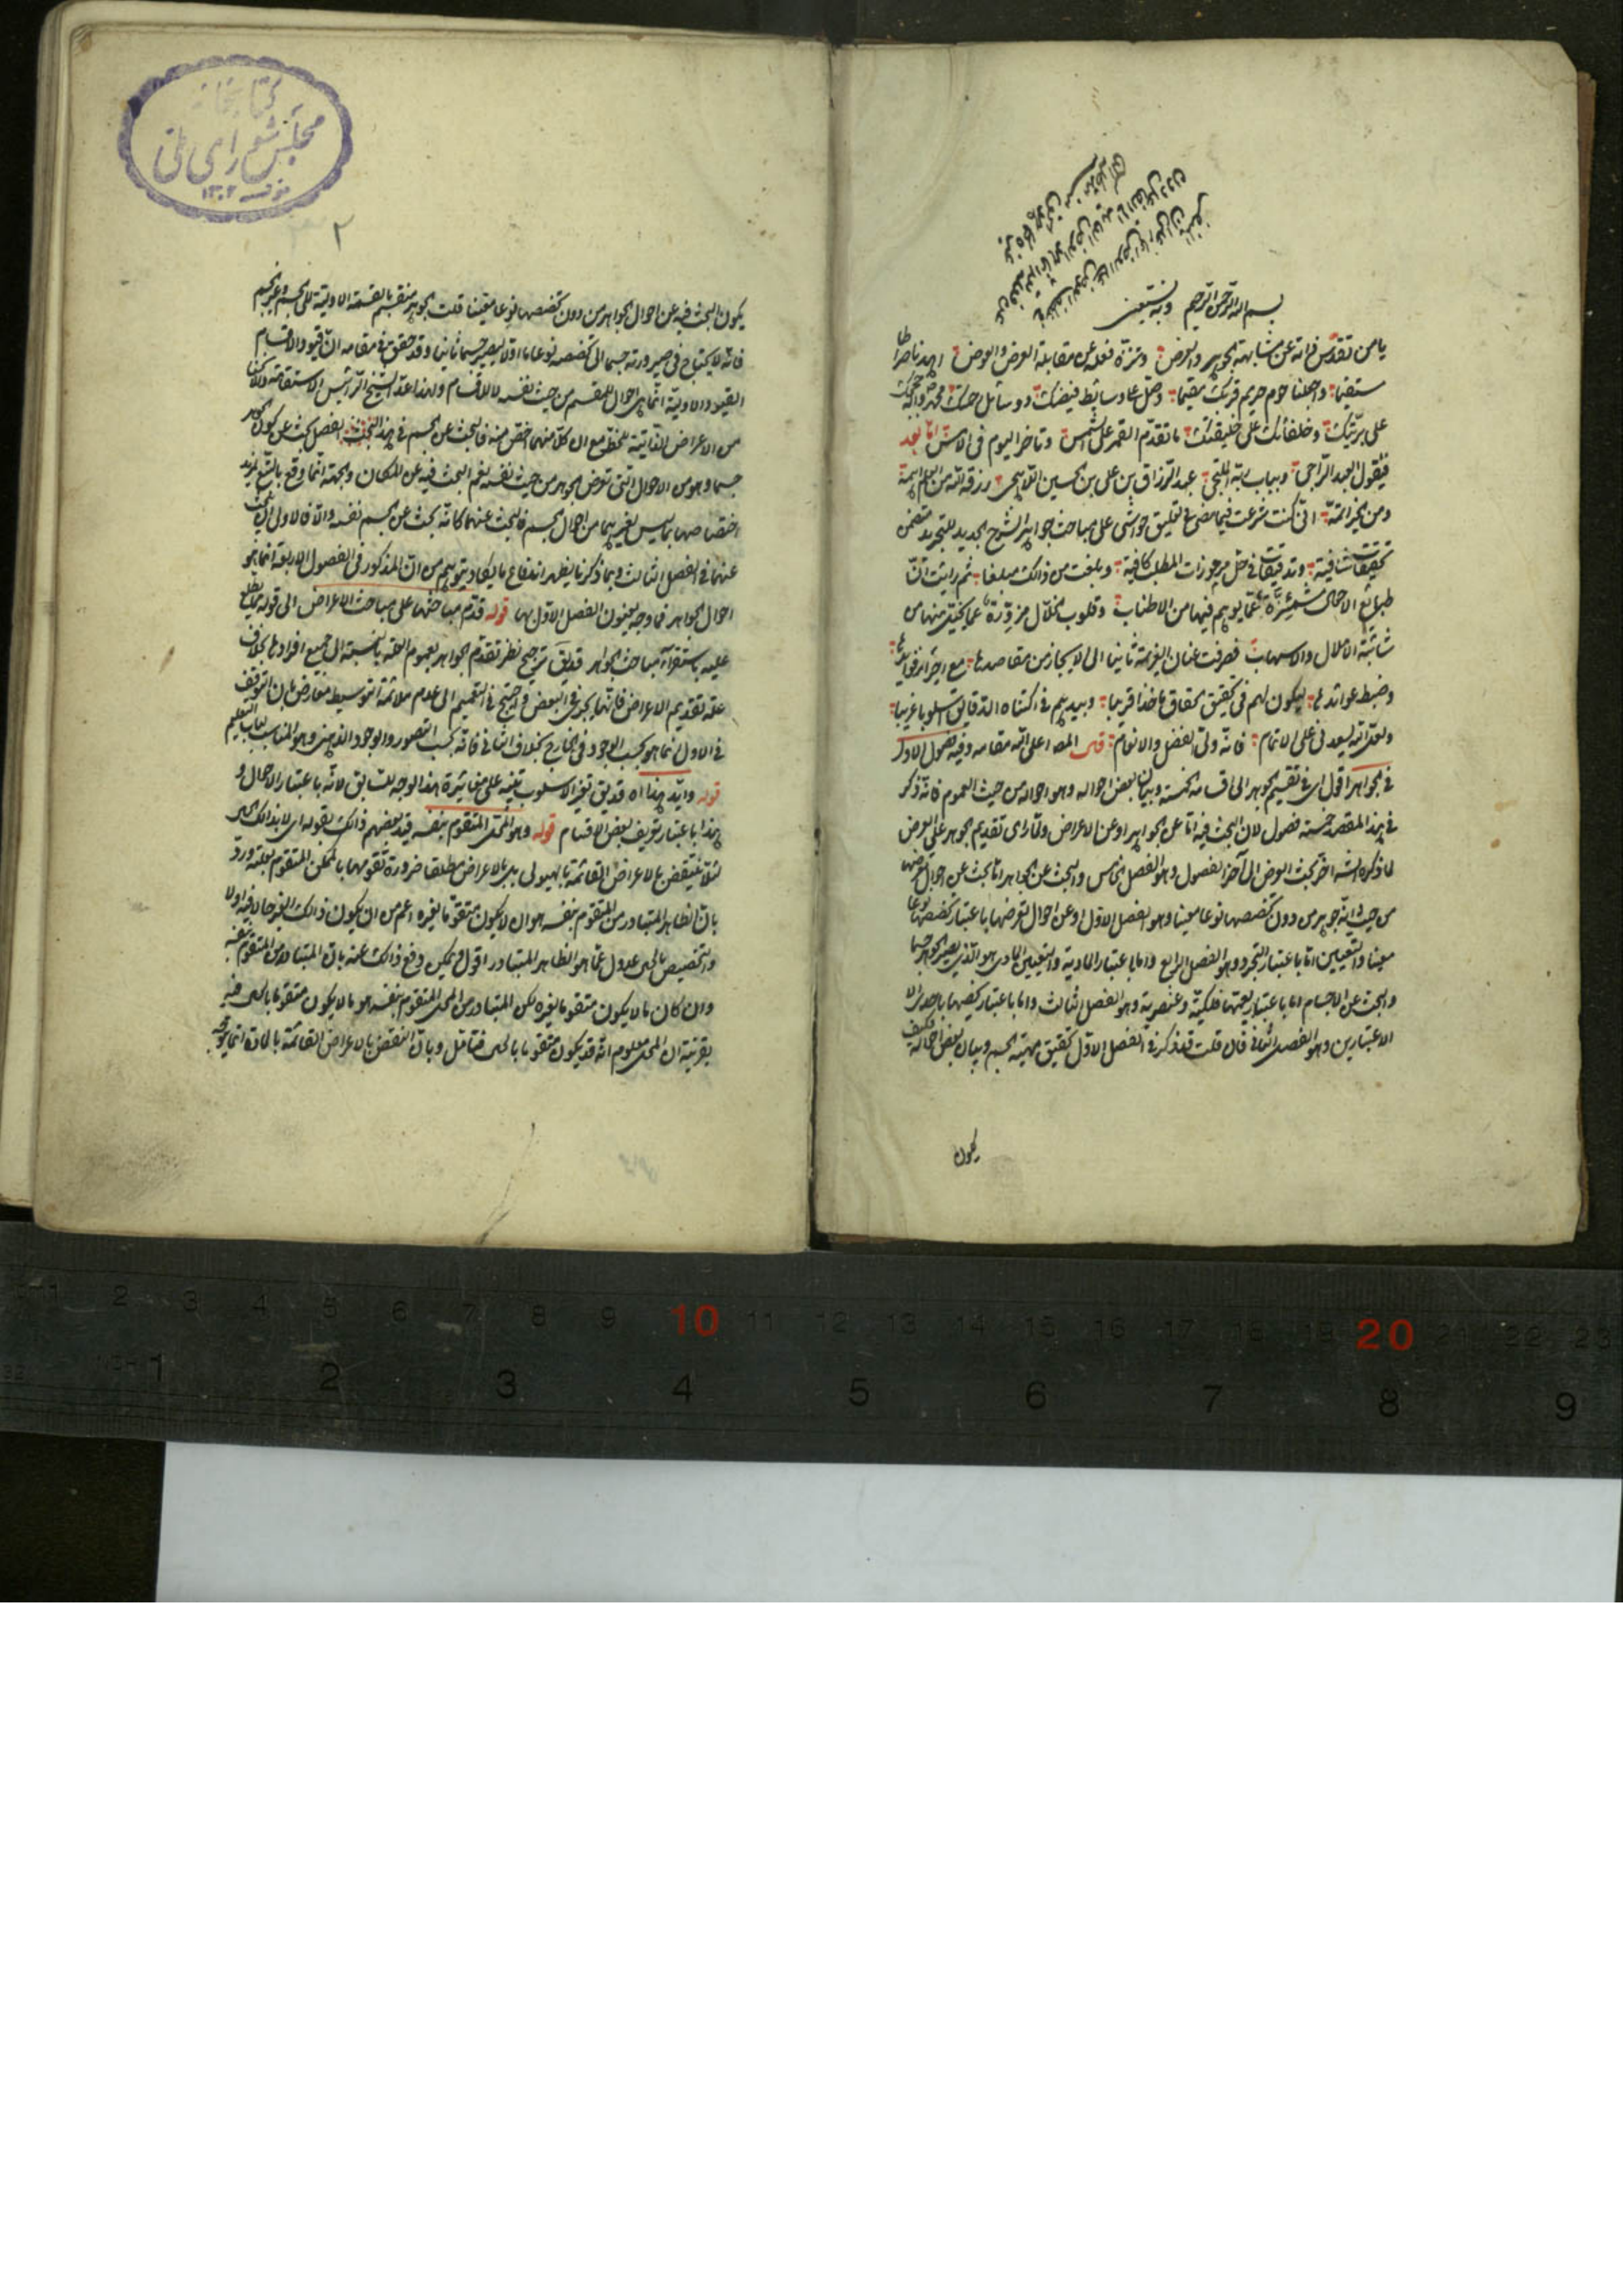 بسم الله الرحمن الرحيم وبه نستعين
يا من تقدس ذاته عن مشابهة الجوهر والعرض وتنزه فعله عن مقابلة العرض والعوض اهدنا صراطا
مستقيما واجعلنا حوم حريم قربك مقيما وصل على وسايط فيضك ووسائل محمد وآله حججك
على بريتك وخلفائك على خليقتك ما تقدم القمر على الشمس وتاخر اليوم عن الامس اما بعد
فيقول العبد الراجي وبباب ربه الملتجي عبد الرزاق بن علي بن الحسين اللاهيجي رزقه الله من العلم
ومن الخير اتمه اني كنت شرعت فيما مضى في تعليق حواشي على مباحث جواهر الشرح الجديد للتجريد متضمن
تحقيقات شافية وتدقيقات في حل مرموزات المطلب كافية وبلغت من ذلك مبلغا ثم رايت ان
طبايع مشمئزة عما يوهم فيها من الاطناب وقلوب
شائبة الاملال والاسهاب فصرفت عنان العزيمة ثانيا الى الايجاز من مقاصدها مع
وضبط عوائدها ليكون لهم في تحقيق الحقايق ماخذا قريبا وبيديهم في اكتناه الدقايق اسلوبا غريبا
ولعل الله يسعدني على الاتمام فانه ولي الفضل والانعام قال المص اعلى الله مقامه وفيه فصول الاول
في الجواهر اقول اي في تقسيم الجوهر الى اقسامه الخمسة وبيان بعض احواله وهو احواله من حيث العموم فانه ذكر
في هذا المقصد خمسة فصول لان البحث فيه اما عن الجواهر او عن الاعراض ولما راى تقديم الجوهر على العرض
لما ذكره الشه اخر بحث العرض الى آخر الفصول وهو الفصل الخامس والبحث عن الجواهر اما بحث عن احوال
من حيث ذاته جوهر من دون تخصصها نوعا معينا وهو الفصل الاول او عن احوال تعرضها باعتبار تخصصها نوعا
معينا والتعيين اما باعتبار التجرد وهو الفصل الرابع واما باعتبار المادية والتعيين المادي هو الذي يصير الجوهر جسما
والبحث عن الاجسام اما باعتبار تعينها فلكية وعنصرية وهو الفصل الثالث واما باعتبار باحد
الاعتبارين وهو الفصل الثاني فان قلت قد ذكر في الفصل الاول تحقيق مهية الجسم وبيان بعض احواله فكيف
يكون
كتابخانه
مجلس شوراى ملى
١٣٠٢
٢
يكون البحث فيه عن احوال الجواهر من دون تخصصها نوعا معينا قلت الجوهر منقسم بالقسمة الاولية الى الجسم وغير الجسم
فانه لا يحتاج في صيرورته جسما الى تخصصه نوعا ما اولا ليصير جسما ثانيا وقد حقق في مقامه ان قيود الاقسام
القيود الاولية انما هي احوال للمقسم من حيث نفسه لا للاقسام ولهذا عد الشيخ الرئيس الاستقامة والانحناء
من الاعراض الذاتية للخط مع ان كلا منهما اخص منه فالبحث عن الجسم في هذا الفصل بحث عن كون الجوهر
جسما وهو من الاحوال التي تعرض الجوهر من حيث نفسه نعم البحث فيه عن المكان والجهة انما وقع بالتبع لمزيد
اختصاصهما بما ليس لغيرهما من احوال الجسم فالبحث عنهما كانه بحث عن الجسم نفسه والا فالاولى ان يبحث
عنهما في الفصل الثالث وبما ذكرنا يظهر اندفاع ما يكاد يتوهم من ان المذكور في الفصول الاربعة انما هو
احوال الجواهر فما وجه تعنون الفصل الاول بها قوله قدم مباحثها على مباحث الاعراض الى قوله
عليه باستقراء مباحث الجواهر قد يق ترجيح نظر تقدم الجواهر بعموم العلة بالنسبة الى جميع افرادها بخلاف
علة تقديم الاعراض فانها تجري في البعض
في الاول انما هو بحسب الوجود في الخارج بخلاف الثاني فانه بحسب التصور والوجود الذهني وهو المناسب لباب التعليم
قوله وايد هذا اه قد يق تغير الاسلوب تنبيه على مغايرة هذا الوجه للسابق لانه باعتبار الاجمال و
هذا باعتبار تعريف بعض الاقسام قوله وهو المحل المتقوم بنفسه قيد بعضهم ذلك بقوله اي لا بذلك الحال
لئلا ينتقض بالاعراض القائمة بالهيولى بل بالاعراض مطلقا ضرورة تقومها بالمحل المتقوم بعلته ورد
بان الظاهر المتبادر من المتقوم بنفسه هو ان لا يكون متقوما بغيره اعم من ان يكون ذلك الغير حالا فيه او لا
والتخصيص بالحال عدول عما هو الظاهر المتبادر اقول ويمكن دفع ذلك عنه بان المتبادر من المتقوم بنفسه
وان كان ما لا يكون متقوما بغيره لكن المتبادر من المحل المتقوم بنفسه هو ما لا يكون متقوما بالحال فيه
بقرينة ان المحل معلوم انه قد يكون متقوما بالحال فتامل وبان النقض بالاعراض القائمة بالمادة انما يتوجه